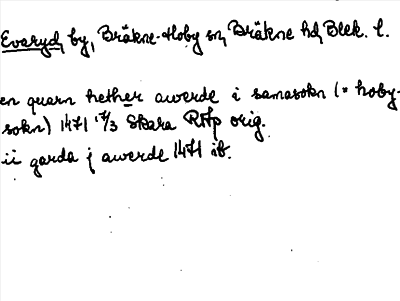 Evaryd, by, Bräkne-Hoby sn, Bräkne hd, Blek. l.
en quarn hether awerde i samasokn (= hoby-
sokn) 1471 17/3 Skara RAp orig.
ii garda j awerde 1471 ib.